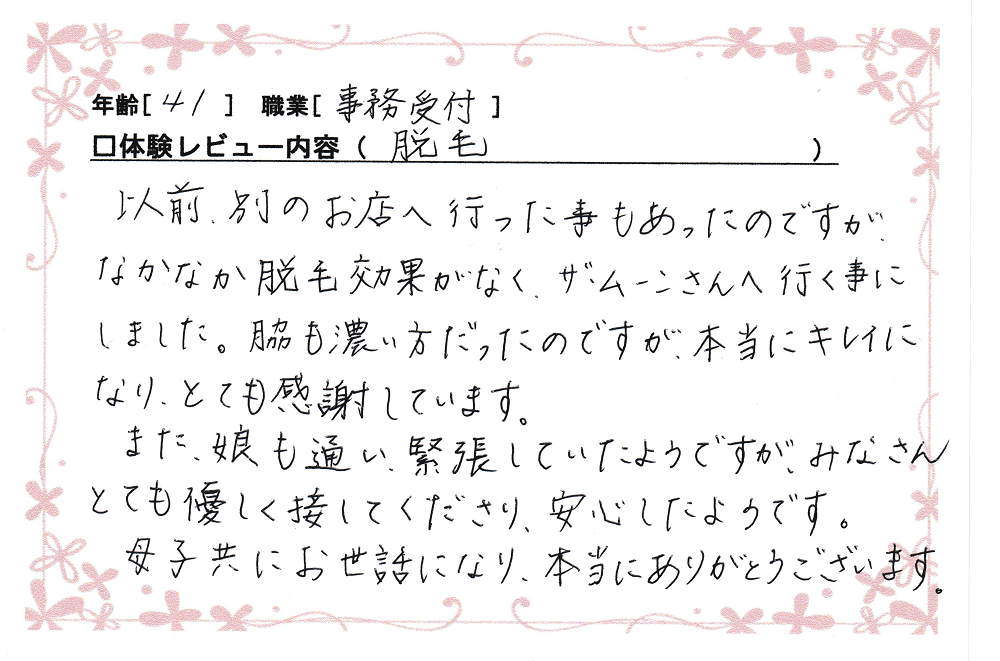 年齢[ 41 ] 職業[ 事務受付 ]
□体験レビュー内容 ( 脱毛 )
以前、別のお店へ行った事もあったのですが、
なかなか脱毛効果がなく、ザ・ムーンさんへ行く事に
しました。脇も濃い方だったのですが、本当にキレイに
なり、とても感謝しています。
また、娘も通い、緊張していたようですが、みなさん
とても優しく接してくださり、安心したようです。
母子共にお世話になり、本当にありがとうございます。